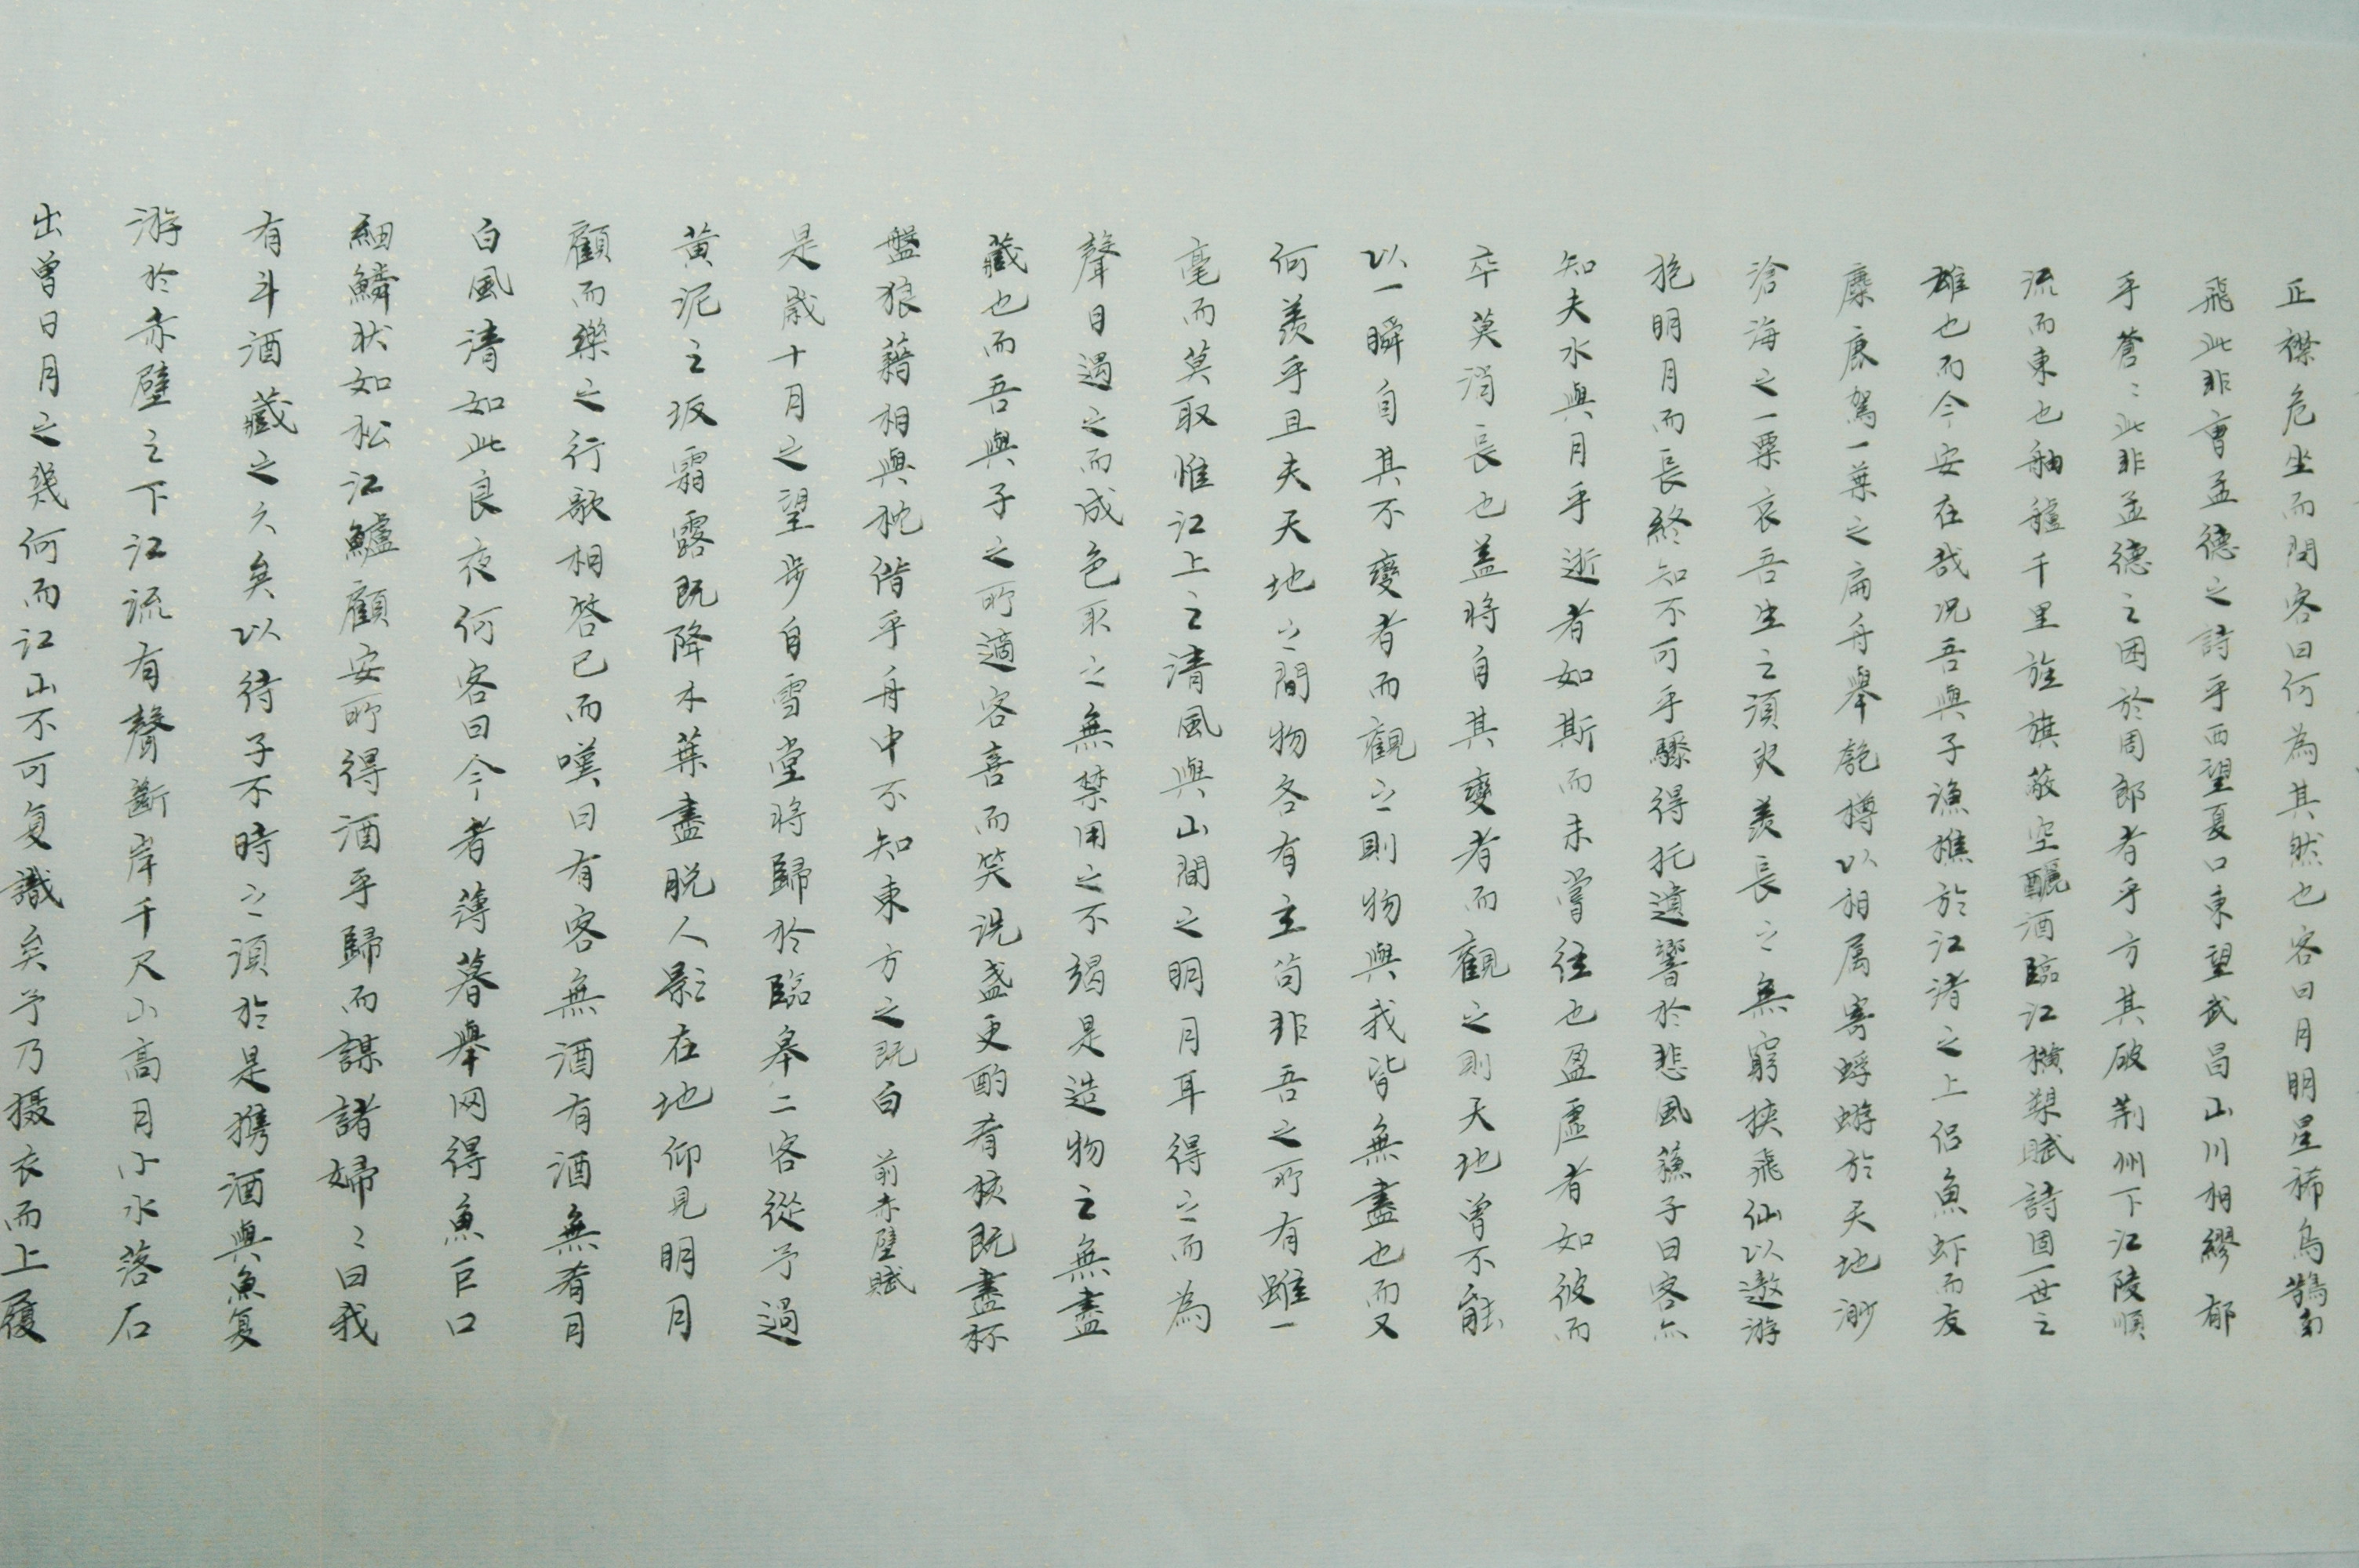 正襟危坐而問客曰何為其然也客曰月明星稀烏鵲南
飛此非曹孟德之詩乎西望夏口東望武昌山川相繆郁
乎蒼〻此非孟德之困於周郎者乎方其破荊州下江陵順
流而東也舳艫千里旌旗蔽空釃酒臨江橫槊賦詩固一世之
雄也而今安在哉況吾與子漁樵於江渚之上侶魚蝦而友
麋鹿駕一葉之扁舟舉匏樽以相屬寄蜉蝣於天地渺
滄海之一粟哀吾生之須臾羨長江無窮挾飛仙以遨游
抱明月而長終知不可乎驟得托遺響於悲風蘇子曰客亦
知夫水與月乎逝者如斯而未嘗往也盈虛者如彼而
卒莫消長也蓋將自其變者而觀之則天地曾不能
以一瞬自其不變者而觀之則物與我皆無盡也而又
何羨乎且夫天地之間物各有主苟非吾之所有雖一
毫而莫取惟江上之清風與山間之明月耳得之而為
聲目遇之而成色取之無禁用之不竭是造物之無盡
藏也而吾與子之所適客喜而笑洗盞更酌肴核既盡杯
盤狼籍相與枕藉乎舟中不知東方之既白 前赤壁賦
是歲十月之望步自雪堂將歸於臨皋二客從予過
黃泥之坂霜露既降木葉盡脫人影在地仰見明月
顧而樂之行歌相答已而嘆曰有客無酒有酒無肴月
白風清如此良夜何客曰今者薄暮舉網得魚巨口
細鱗狀如松江鱸顧安所得酒乎歸而謀諸婦〻曰我
有斗酒藏之久矣以待子不時之須於是攜酒與魚復
游於赤壁之下江流有聲斷岸千尺山高月小水落石
出曾日月之幾何而江山不可復識矣予乃攝衣而上履